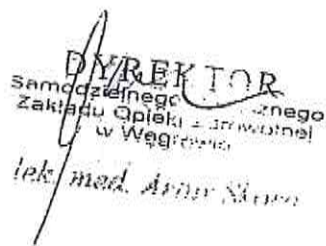 DYREKTOR
Samodzielnego
Zakładu Opieki Zdrowotnej
w Węgrowie
lek. med. Artur